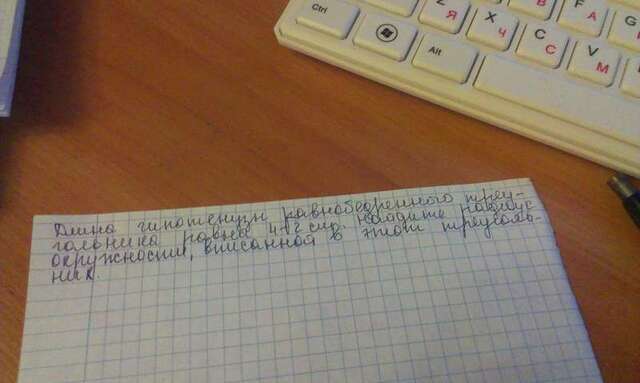 Ctrl
Alt
Z Я
X Ч
C С
V М
F А
В
Длина гипотенузы равнобедренного треу-
гольника равна см. найдите радиус
окружности, вписанной в этот треуголь-
ник.